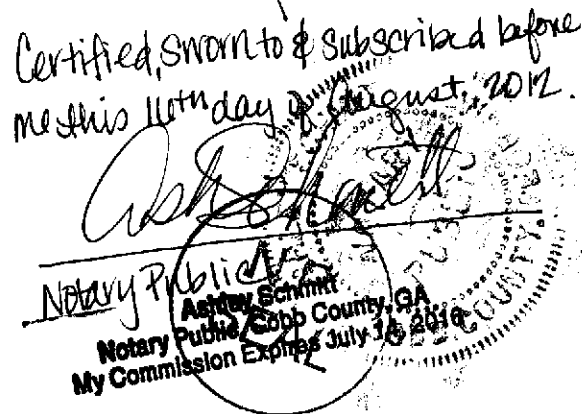 Certified, sworn to & subscribed before
me this 16th day of August, 2012.
Notary Public
Ashley Schmitt
Notary Public, Cobb County, GA
My Commission Expires July 14, 2016
PUBLIC
COUNTY